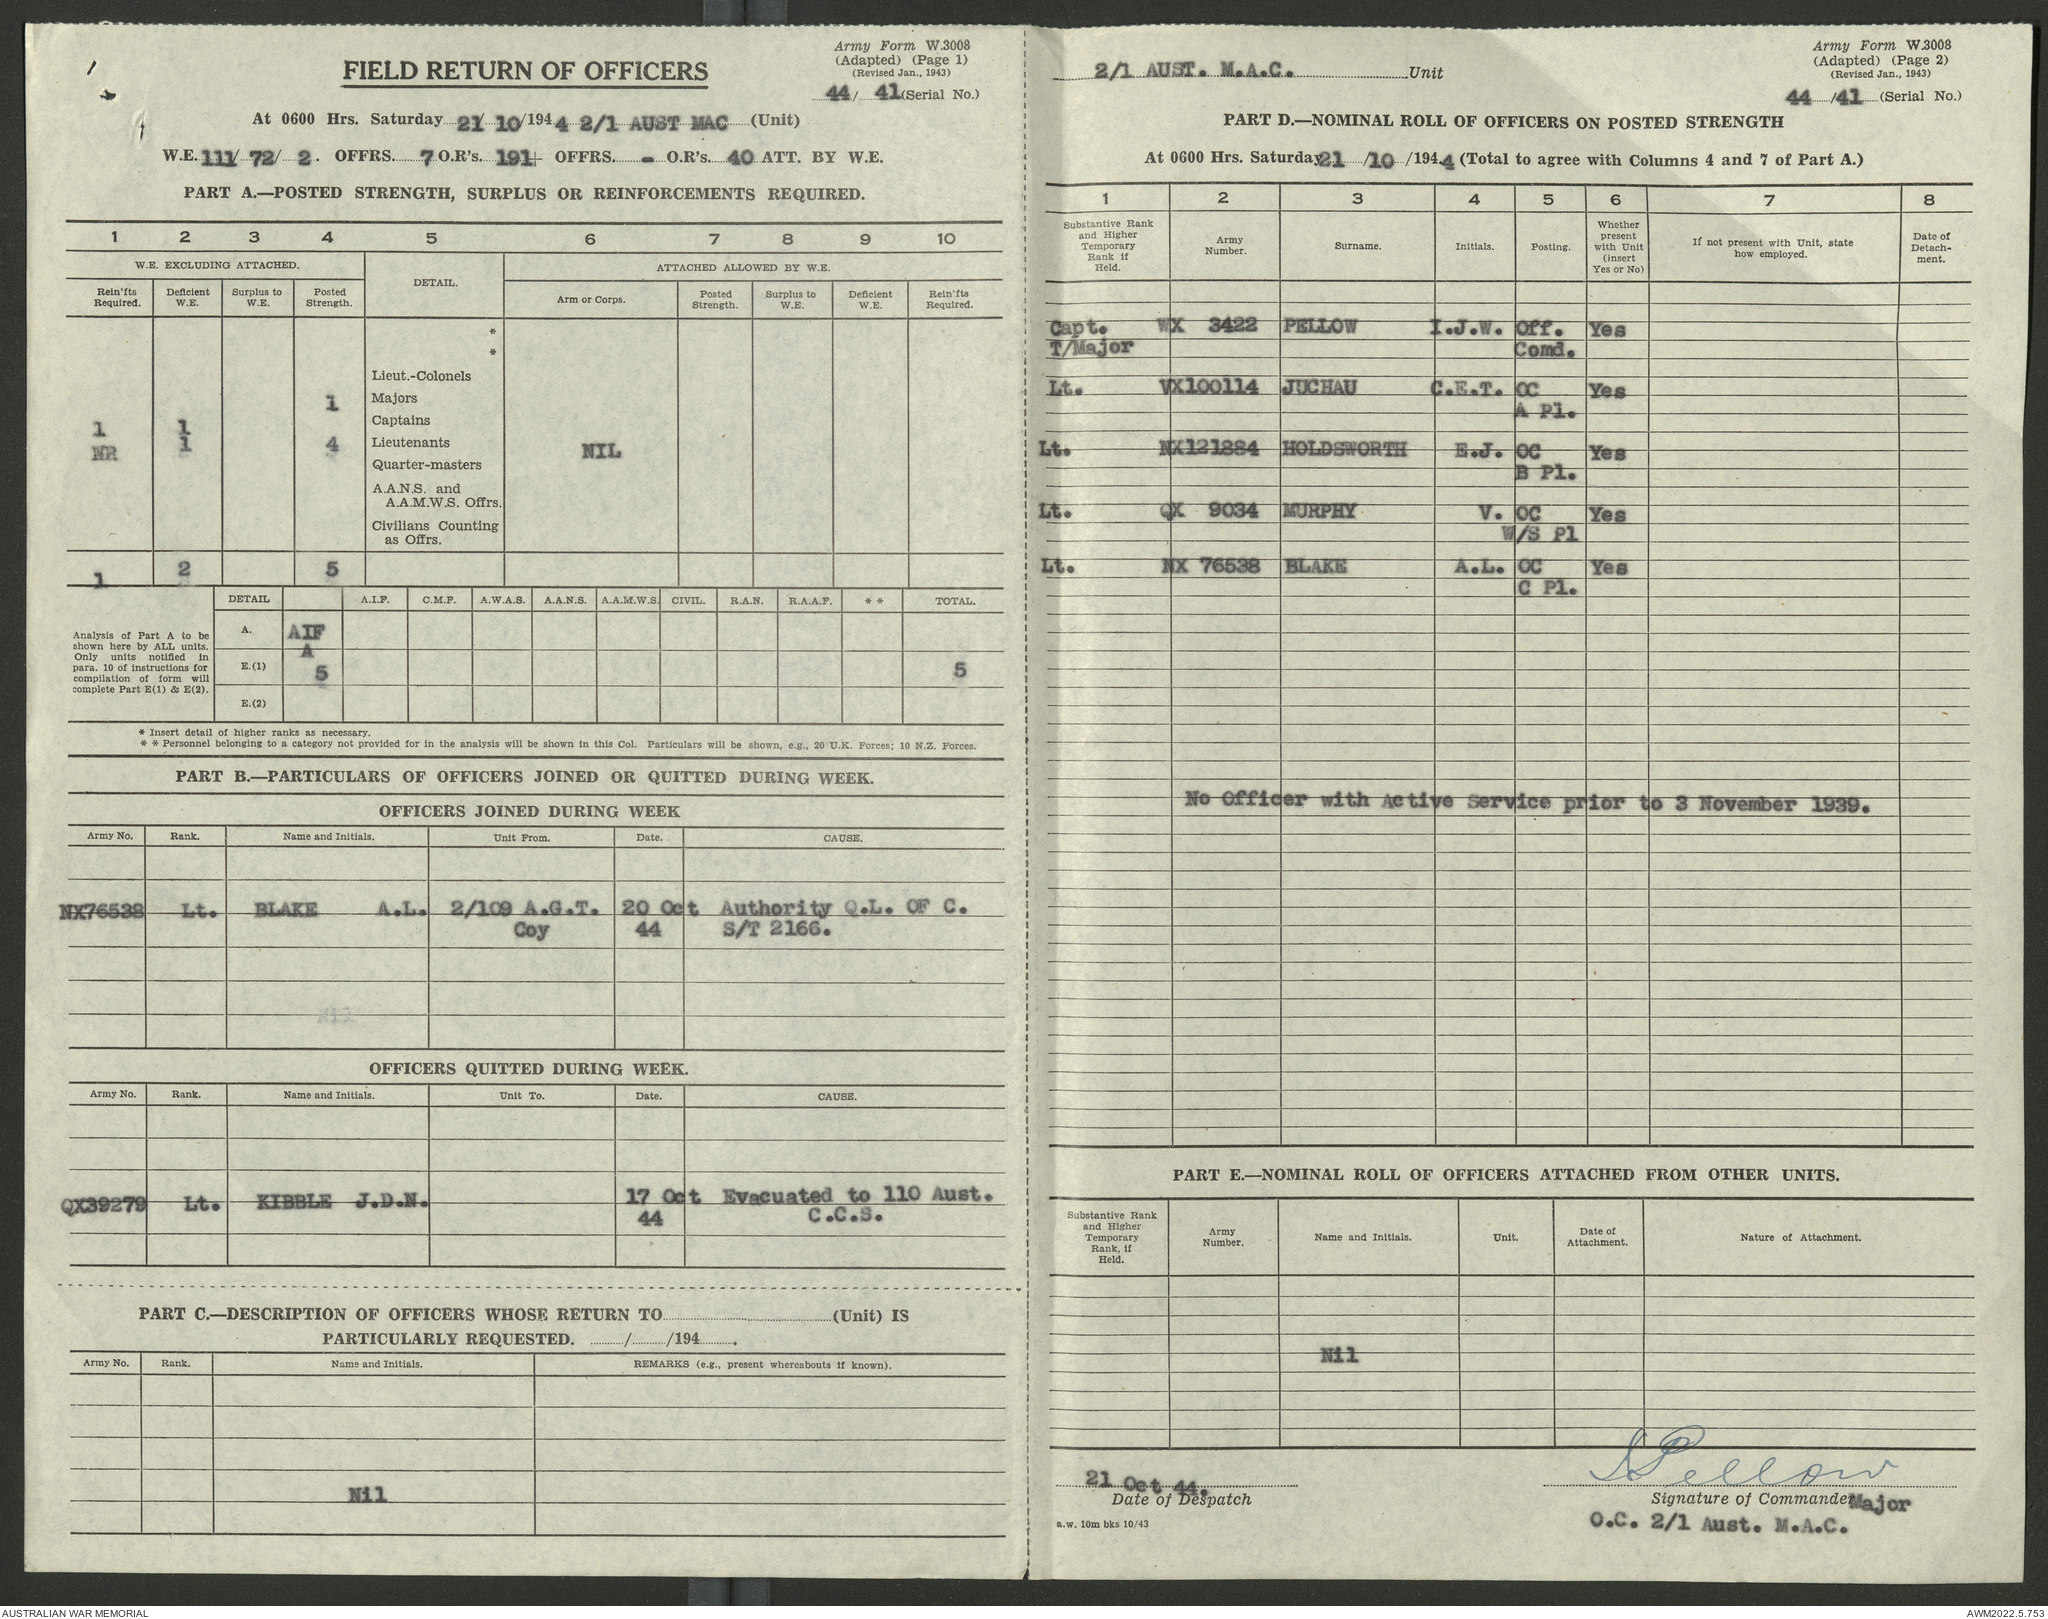 Army Form W.3008
(Adapted) (Page 1)
(Revised Jan., 1943)
44/ 41 (Serial No.)
FIELD RETURN OF OFFICERS
At 0600 Hrs. Saturday 21/ 10 /194 4 2/1 AUST MAC (Unit)
W.E. 111/ 72/ 2. OFFRS. 7 O.R's. 191+ OFFRS. - O.R's. 40 ATT. BY W.E.
PART A.—POSTED STRENGTH, SURPLUS OR REINFORCEMENTS REQUIRED.
1 2 3 4 5 6 7 8 9 10
W.E. EXCLUDING ATTACHED. DETAIL. ATTACHED ALLOWED BY W.E.
Rein'fts Required. Deficient W.E. Surplus to W.E. Posted Strength. Arm or Corps. Posted Strength. Surplus to W.E. Deficient W.E. Rein'fts Required.
*
*
Lieut.-Colonels
1 Majors
1 1 Captains
NR 1 4 Lieutenants NIL
Quarter-masters
A.A.N.S. and
A.A.M.W.S. Offrs.
Civilians Counting
as Offrs.
1 2 5
DETAIL A.I.F. C.M.F. A.W.A.S. A.A.N.S. A.A.M.W.S. CIVIL. R.A.N. R.A.A.F. * * TOTAL.
Analysis of Part A to be
shown here by ALL units.
Only units notified in
para. 10 of instructions for
compilation of form will
complete Part E(1) & E(2).
A. AIF
A
E.(1) 5 5
E.(2)
* Insert detail of higher ranks as necessary.
* * Personnel belonging to a category not provided for in the analysis will be shown in this Col. Particulars will be shown, e.g., 20 U.K. Forces; 10 N.Z. Forces.
PART B.—PARTICULARS OF OFFICERS JOINED OR QUITTED DURING WEEK.
OFFICERS JOINED DURING WEEK
Army No. Rank. Name and Initials. Unit From. Date. CAUSE.
NX76538 Lt. BLAKE A.L. 2/109 A.G.T. 20 Oct Authority Q.L. OF C.
Coy 44 S/T 2166.
Nil
OFFICERS QUITTED DURING WEEK.
Army No. Rank. Name and Initials. Unit To. Date. CAUSE.
QX39279 Lt. KIBBLE J.D.N. 17 Oct Evacuated to 110 Aust.
44 C.C.S.
PART C.—DESCRIPTION OF OFFICERS WHOSE RETURN TO (Unit) IS
PARTICULARLY REQUESTED. / /194 .
Army No. Rank. Name and Initials. REMARKS (e.g., present whereabouts if known).
Nil
2/1 AUST. M.A.C. Unit
Army Form W.3008
(Adapted) (Page 2)
(Revised Jan., 1943)
44 /41 (Serial No.)
PART D.—NOMINAL ROLL OF OFFICERS ON POSTED STRENGTH
At 0600 Hrs. Saturday 21 /10 /194 4 (Total to agree with Columns 4 and 7 of Part A.)
1 2 3 4 5 6 7 8
Substantive Rank and Higher Temporary Rank if Held. Army Number. Surname. Initials. Posting. Whether present with Unit (insert Yes or No) If not present with Unit, state how employed. Date of Detach-ment.
Capt. WX 3422 PELLOW I.J.W. Off. Yes
T/Major Comd.
Lt. VX100114 JUCHAU C.E.T. OC Yes
A Pl.
Lt. NX121884 HOLDSWORTH E.J. OC Yes
B Pl.
Lt. QX 9034 MURPHY V. OC Yes
W/S Pl
Lt. NX 76538 BLAKE A.L. OC Yes
C Pl.
No Officer with Active Service prior to 3 November 1939.
PART E.—NOMINAL ROLL OF OFFICERS ATTACHED FROM OTHER UNITS.
Substantive Rank and Higher Temporary Rank, if Held. Army Number. Name and Initials. Unit. Date of Attachment. Nature of Attachment.
Nil
I Pellow
21 Oct 44.
Date of Despatch
Signature of Commander Major
O.C. 2/1 Aust. M.A.C.
a.w. 10m bks 10/43
AUSTRALIAN WAR MEMORIAL
AWM2022.5.753